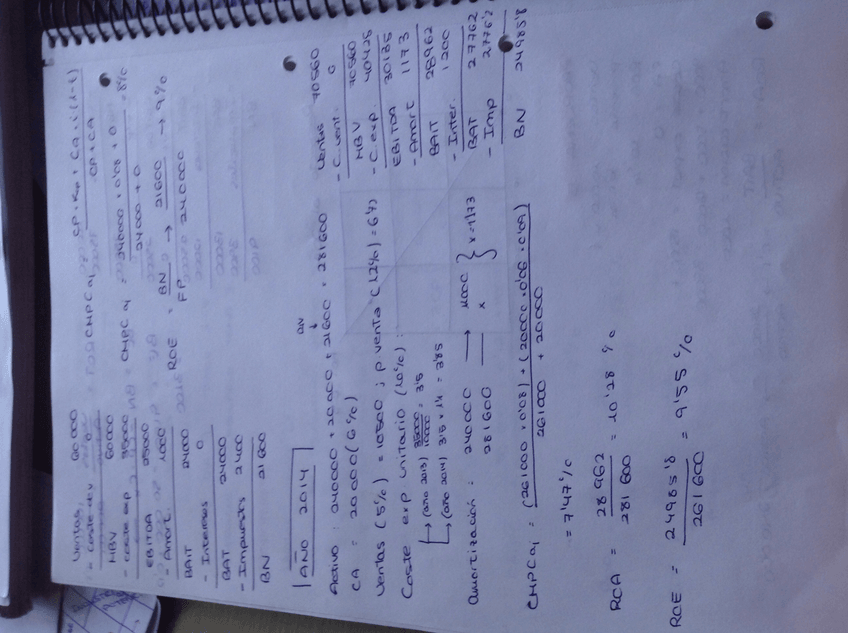 Ventas 60.000
- coste dev 0
MBV 60000
- coste exp 35000
EBITDA 25000
- Amort. 1000
BAIT 24000
- Intereses 0
BAT 24000
- Impuestos 2400
BN 21600
CMPC a1 = CP · Kp + CA · i (1-t)
CP + CA
CMPC a1 = 240000 · 0'08 + 0 = 8%
24000 + 0
ROE = BN → 21600 → 9%
FP 240000
AÑO 2014
BN
Activo: 240000 + 20000 + 21600 = 281600
CA = 20000 (6%)
Ventas (5%) = 10500 ; p. venta (12%) = 6'72
Coste exp. unitario (10%):
↳ (año 2013) 35000 = 3'5
10000
↳ (año 2014) 3'5 × 1'1 = 3'85
Amortización = 240000 → 1000
281600 — x } x = 1173
Ventas 70560
- C. vent. 0
MBV 70560
- C. exp. 40425
EBITDA 30135
- Amort 1173
BAIT 28962
- Inter. 1200
BAT 27762
- Imp 2776'2
BN 24985'8
CMPC a1 = (261000 · 0'08) + (20000 · 0'06 · 0'09)
261000 + 20000
= 7'47%
RCA = 28962 = 10'28 %
281600
ROE = 24985'8 = 9'55 %
261600